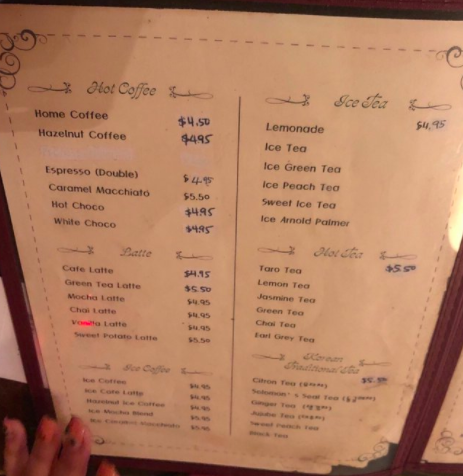 Hot Coffee
Home Coffee $4.50
Hazelnut Coffee $4.95
Espresso (Double) $4.95
Caramel Macchiato $5.50
Hot Choco $4.95
White Choco $4.95
Latte
Cafe Latte $4.95
Green Tea Latte $5.50
Mocha Latte $4.95
Chai Latte $4.95
Vanilla Latte $4.95
Sweet Potato Latte $5.50
Ice Coffee
Ice Coffee $4.95
Ice Cafe Latte $4.95
Hazelnut Ice Coffee $4.95
Ice Mocha Blend
Ice Caramel Macchiato
Ice Tea
Lemonade $4.95
Ice Tea
Ice Green Tea
Ice Peach Tea
Sweet Ice Tea
Ice Arnold Palmer
Hot Tea
Taro Tea $5.50
Lemon Tea
Jasmine Tea
Green Tea
Chai Tea
Earl Grey Tea
Korean
Traditional Tea
Citron Tea $5.50
Solomon's Seal Tea
Ginger Tea
Jujube Tea
Sweet Peach Tea
Black Tea